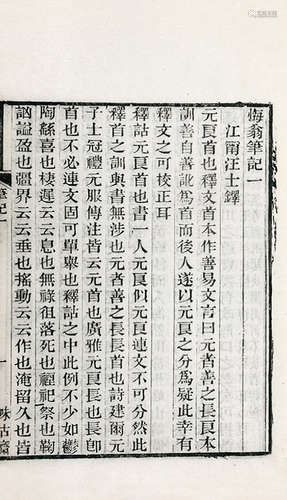 悔翁筆記一
江甯汪士鐸
元良首也釋文首本作善易文言曰元者善之長良本
訓善自善訛爲首而後人遂以元良之分爲疑此幸有
釋文之可校正耳
釋詁元良首也書一人元良似元良連文不可分然此
釋首之訓與書無涉也元者善之長長首也詩建爾元
子士冠禮元服傳注皆云元首也廣雅元良長也長卽
首也不必連文固可單舉也釋詁之中此例不少如鬱
陶繇喜也棲遲云云息也無祿徂落死也禋祀祭也鞠
訩溢盈也疆云云垂也搖動云云作也淹留久也皆
筆記一
一
味古齋